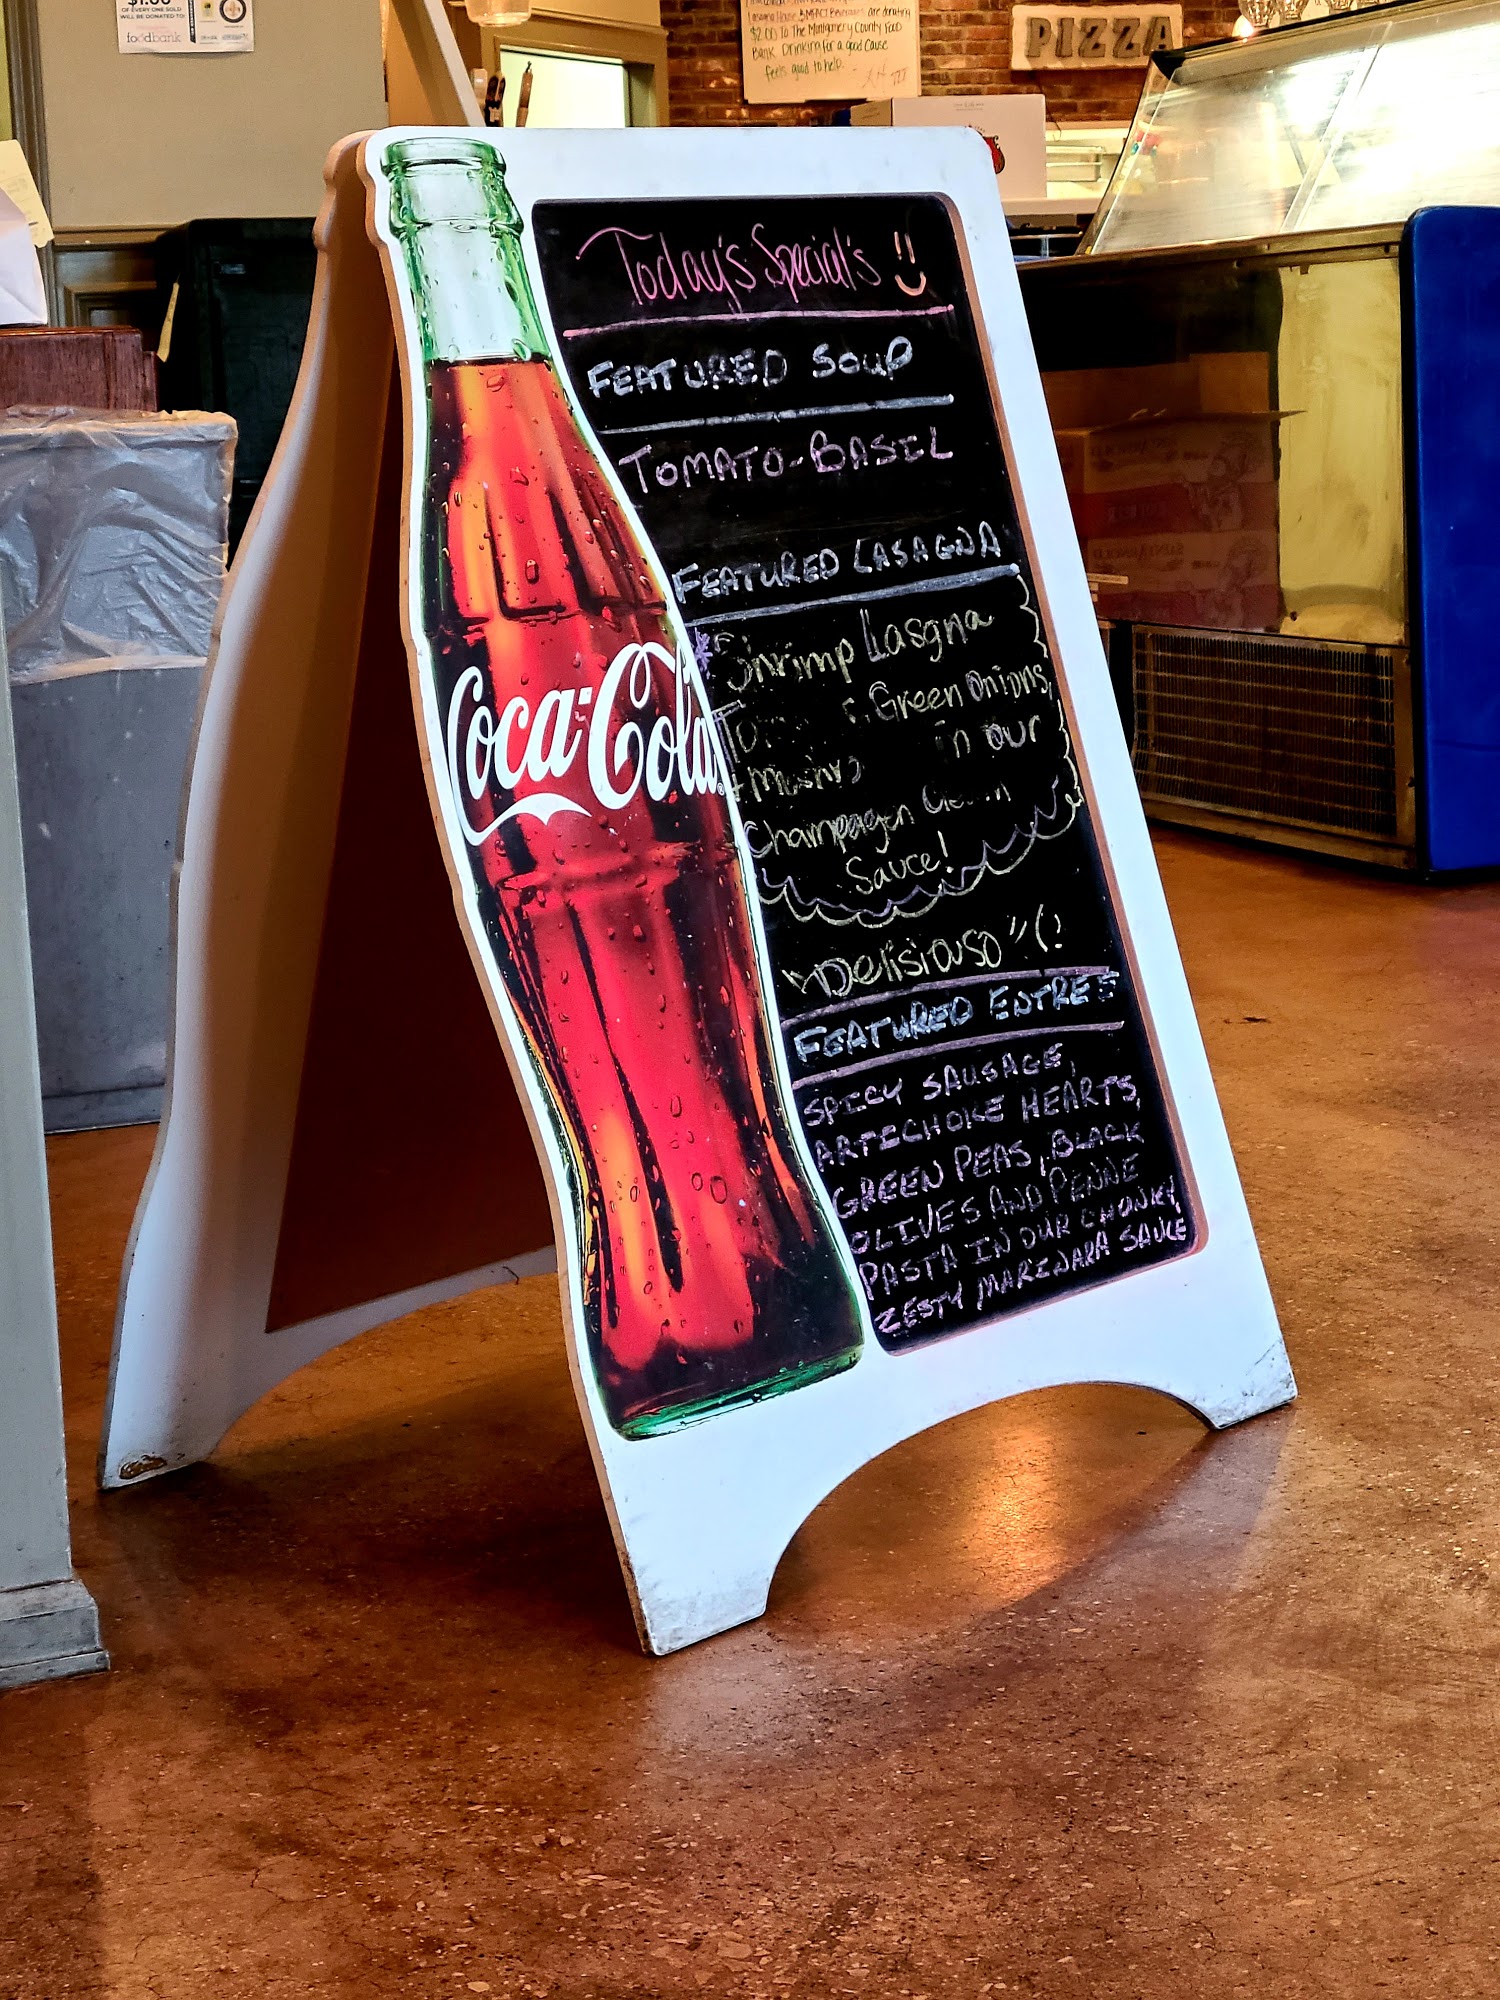 $1.00
OF EVERY ONE SOLD
WILL BE DONATED TO:
foodbank
Lasagna House & IMPACT are donating
$2.00 To The Montgomery County Food
Bank. Drinking for a good Cause
feels good to help.
PIZZA
Today's Special's
FEATURED SOUP
TOMATO-BASIL
FEATURED LASAGNA
*Shrimp Lasgna
Green Onions,
in our
Champagen Cream
Sauce!
"Delisiouso"(!
FEATURED ENTREE
SPICY SAUSAGE,
ARTICHOKE HEARTS,
GREEN PEAS, BLACK
OLIVES AND PENNE
PASTA IN OUR CHONKY,
ZESTY MARINARA SAUCE
Coca-Cola®